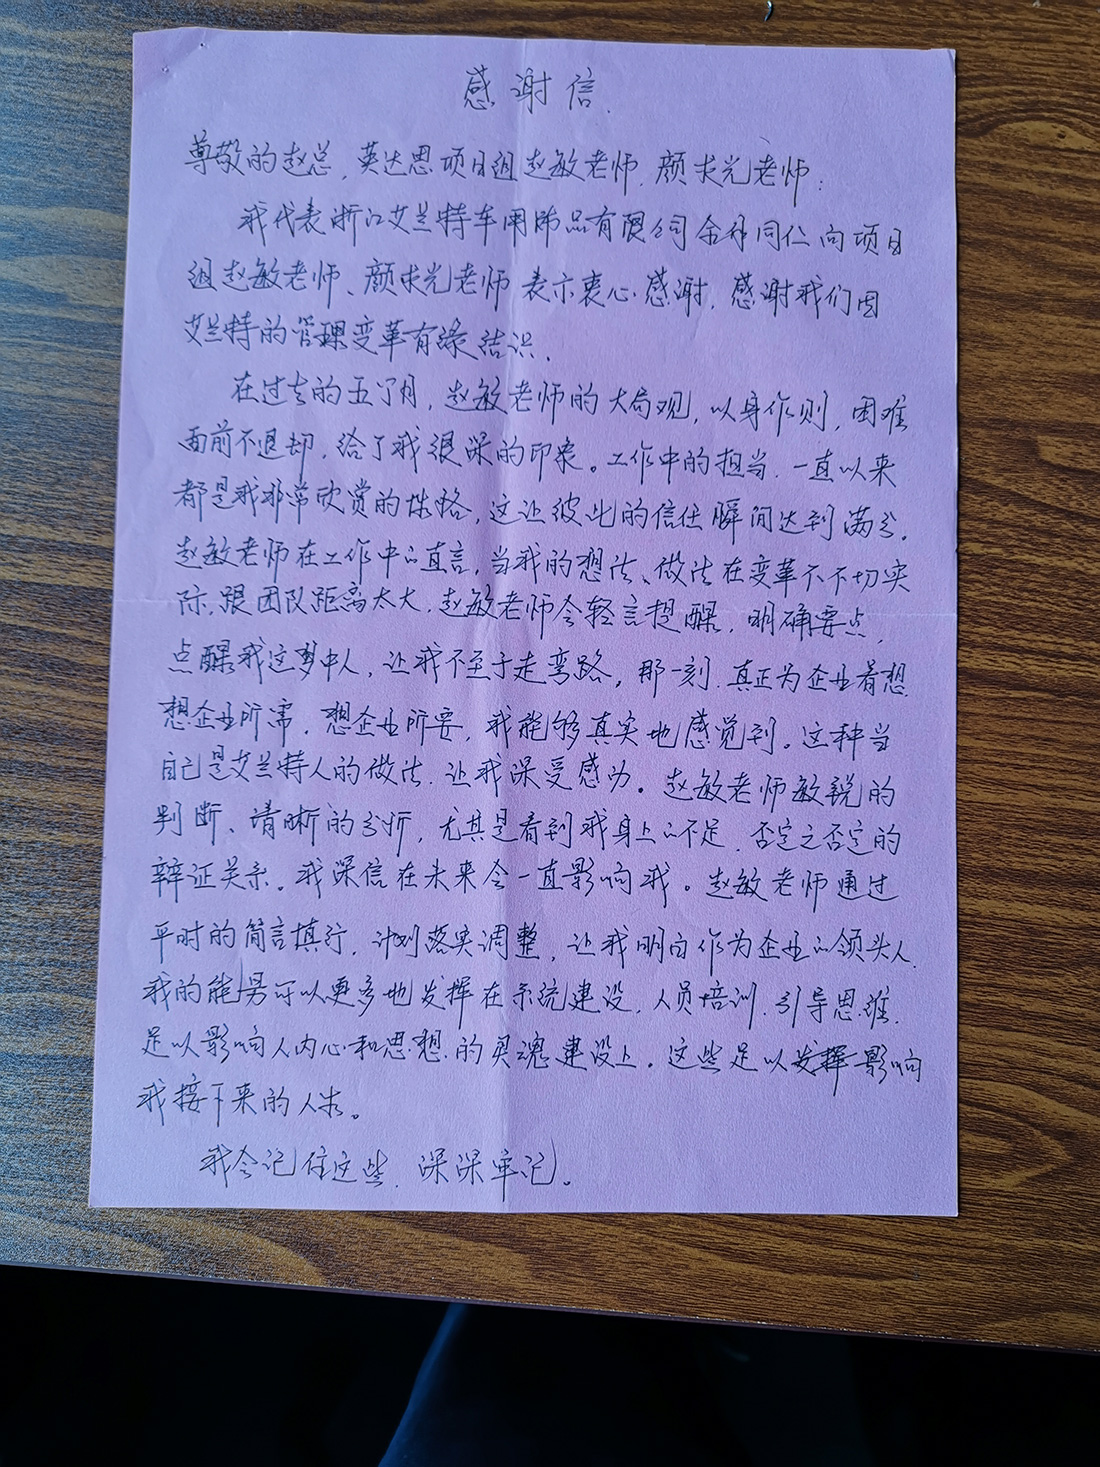 感谢信.
尊敬的赵总,英达思项目组赵敏老师,颜求光老师:
我代表浙江艾兰特车用饰品有限公司全体同仁向项目
组赵敏老师、颜求光老师表示衷心感谢,感谢我们因
艾兰特的管理变革有缘结识.
在过去的五个月,赵敏老师的大局观,以身作则,困难
面前不退却,给了我很深的印象。工作中的担当,一直以来
都是我非常欣赏的性格,这让彼此的信任瞬间达到满分。
赵敏老师在工作中的直言,当我的想法、做法在变革下不切实
际,跟团队距离太大,赵敏老师会轻言提醒,明确要点,
点醒我这梦中人,让我不至于走弯路,那一刻,真正为企业着想
想企业所需,想企业所要,我能够真实地感觉到。这种当
自己是艾兰特人的做法,让我深受感动。赵敏老师敏锐的
判断、清晰的分析,尤其是看到我身上的不足,否定之否定的
辩证关系。我深信在未来会一直影响我。赵敏老师通过
平时的简言慎行,计划落实调整,让我明白作为企业的领头人,
我的能量可以更多地发挥在系统建设,人员培训,引导思维,
足以影响人内心和思想的灵魂建设上。这些足以发挥影响
我接下来的人生。
我会记住这些,深深牢记。